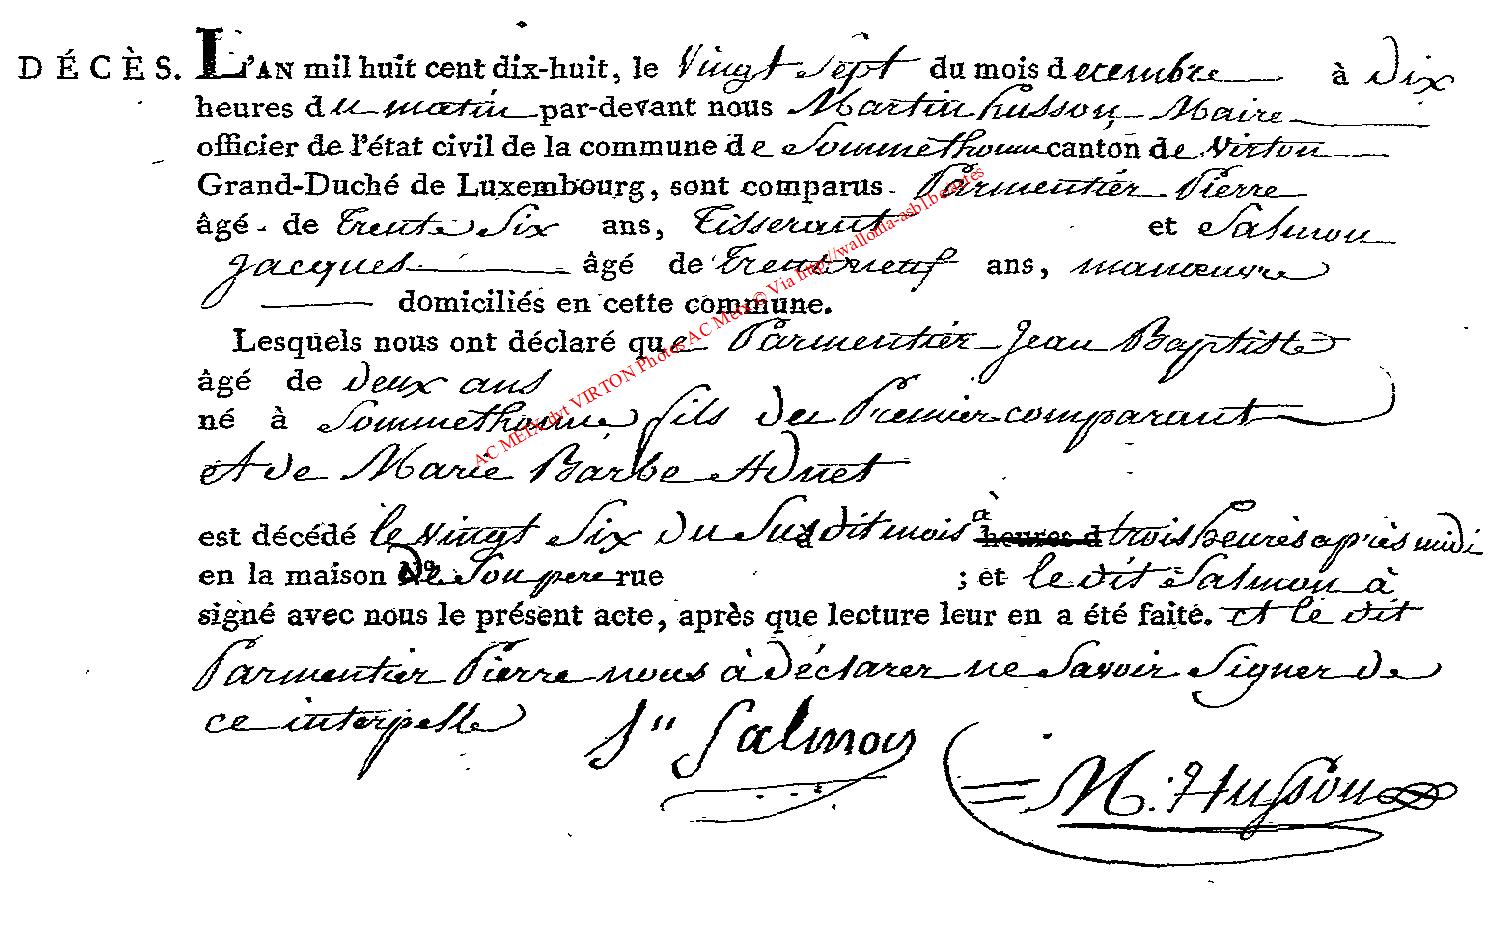 DÉCÈS. L'AN mil huit cent dix-huit, le Vingt sept du mois decembre à Dix
heures du matin par-devant nous Martin husson, Maire
officier de l'état civil de la commune de Sommethonne canton de Virton
Grand-Duché de Luxembourg, sont comparus Parmentier Pierre
âgé de trente Six ans, Tisserant et Salmon
Jacques âgé de trente neuf ans, manœuvre
domiciliés en cette commune.
Lesquels nous ont déclaré que Parmentier Jean Baptiste
âgé de deux ans
né à Sommethonne fils du Premier comparant
et de Marie Barbe Adnet
est décédé le vingt Six du Susdit mois à heures d trois heures après midi
en la maison de Son pere rue ; et le dit Salmon à
signé avec nous le présent acte, après que lecture leur en a été faite. et le dit
Parmentier Pierre nous à déclarer ne Savoir Signer de
ce interpelle
Salmon
M. Husson
AC MEIX dvt VIRTON Photos AC Meix © Via http://wallonia-asbl.be/actes